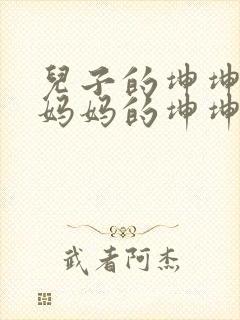 兒子的坤坤
妈妈的坤坤
武者阿杰